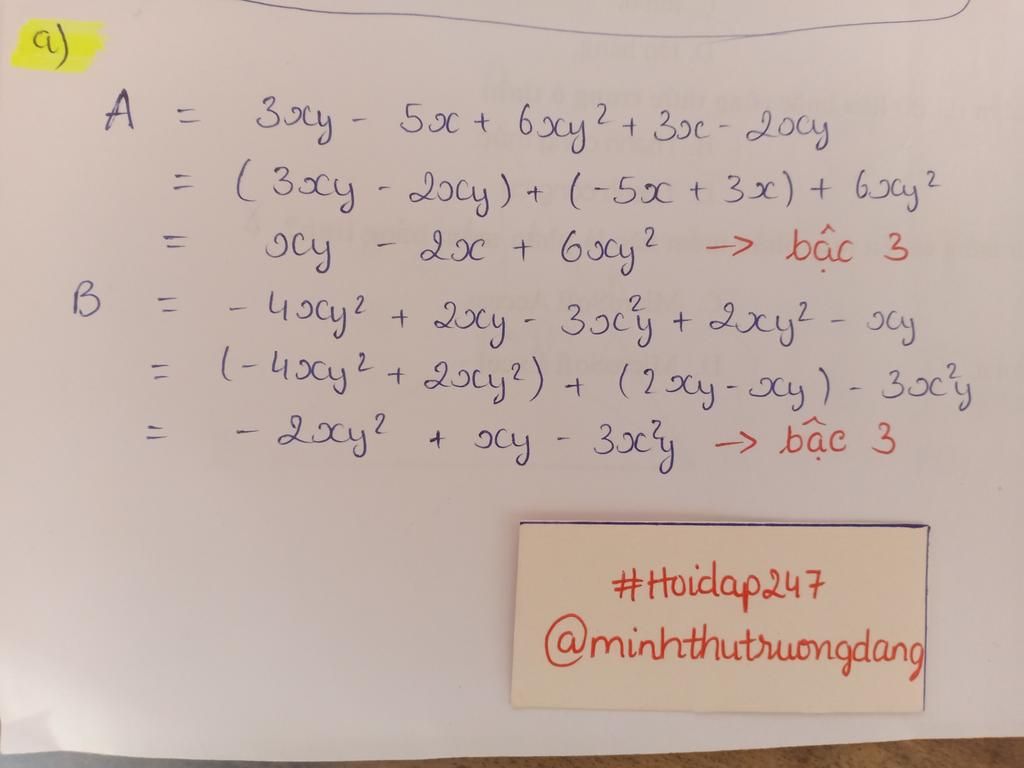 a)
A = 3xy - 5x + 6xy² + 3x - 2xy
= (3xy - 2xy) + (-5x + 3x) + 6xy²
= xy - 2x + 6xy² → bậc 3
B = - 4xy² + 2xy - 3x²y + 2xy² - xy
= (-4xy² + 2xy²) + (2xy - xy) - 3x²y
= - 2xy² + xy - 3x²y → bậc 3
#Hoidap247
@minhthutruongdang